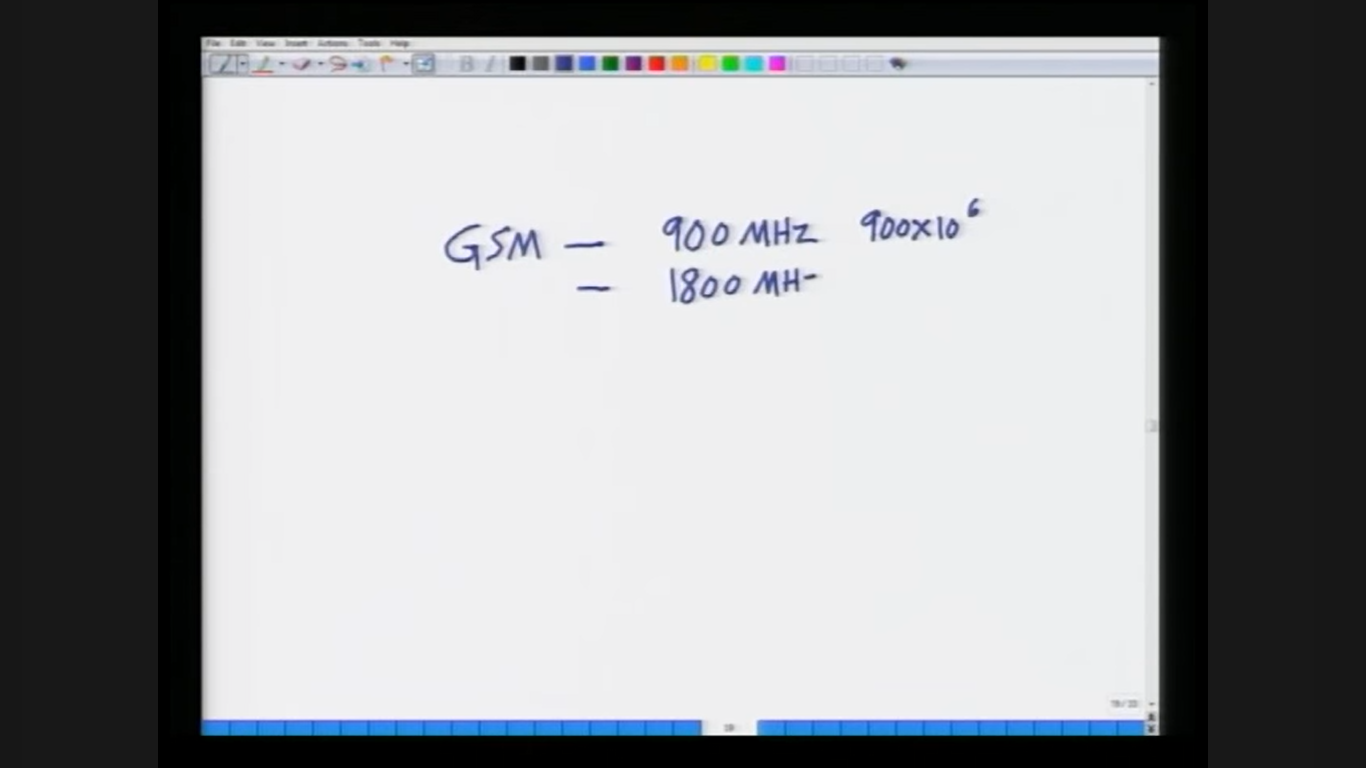 File Edit View Insert Actions Tools Help
B I
GSM — 900 MHz 900x10⁶
— 1800 MH-
19